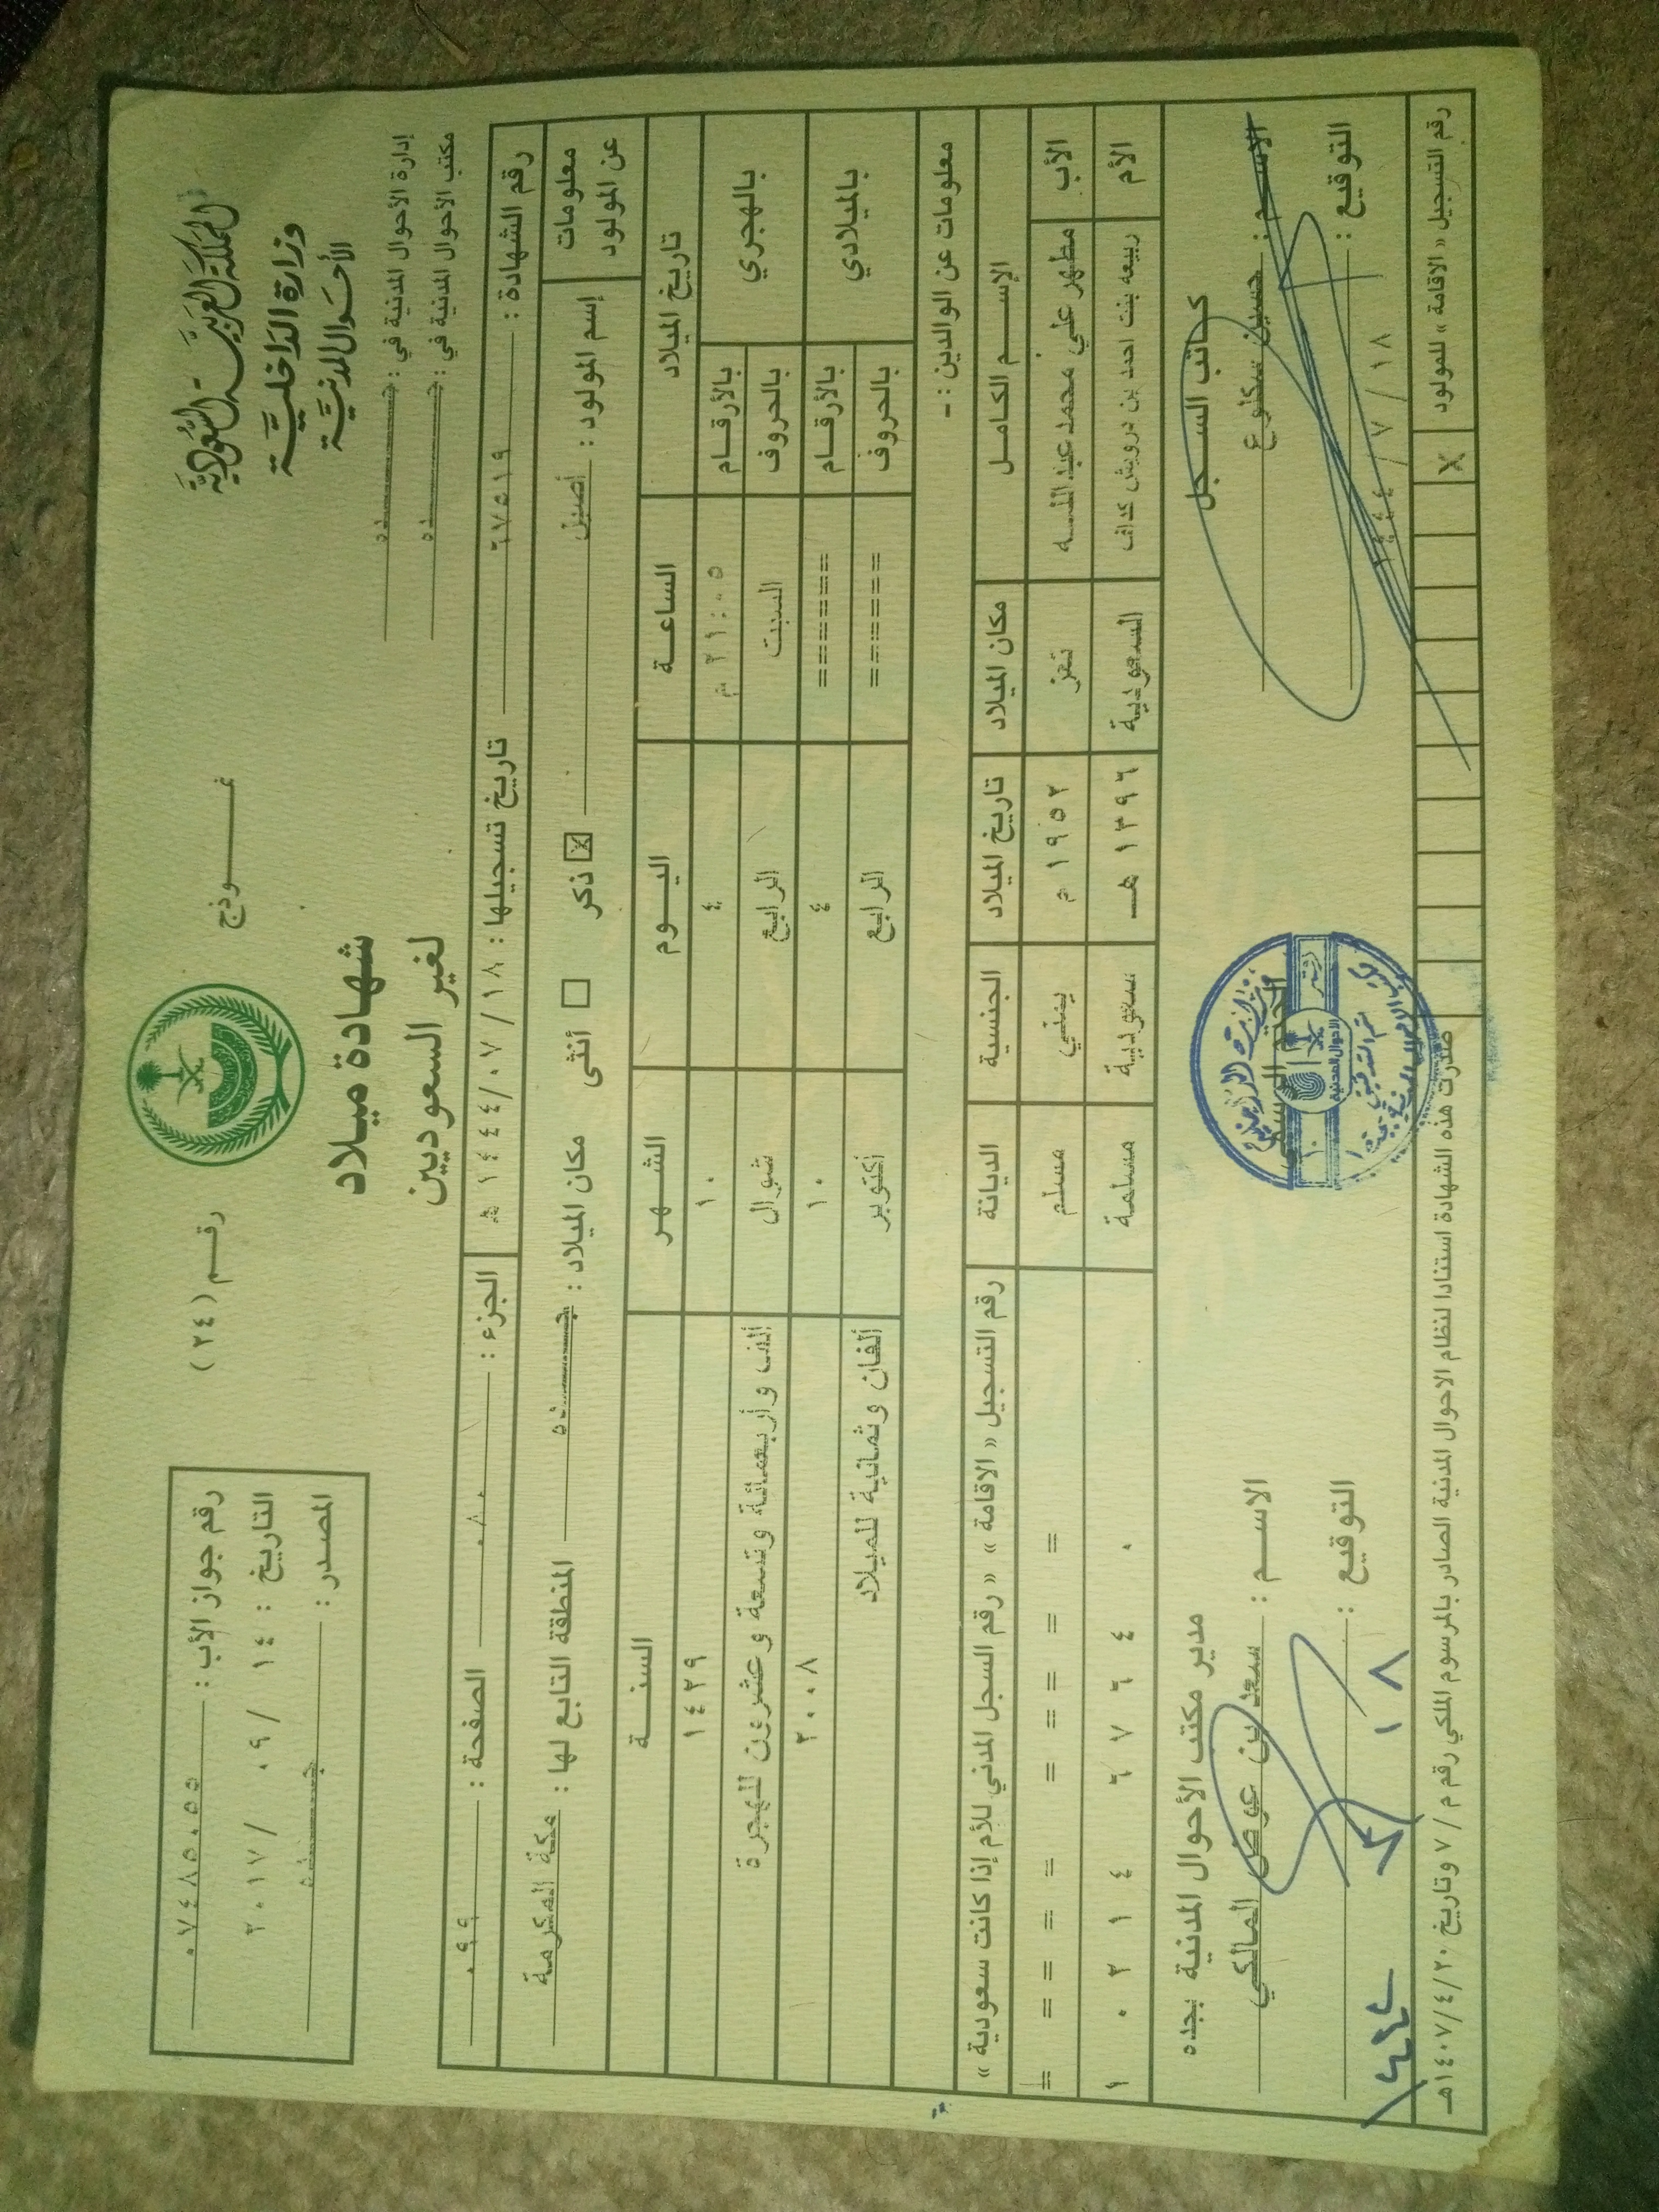 المملكة العربية السعودية
وزارة الداخلية
الأحوال المدنية
إدارة الأحوال المدنية في : جـــــده
مكتب الأحوال المدنية في : جـــــده
نمـــوذج
رقـم ( ٢٤ )
شهادة ميلاد
لغير السعوديين
رقم جواز الأب : ٠٧٤٨٥٠٥٥
التاريخ : ١٤ / ٠٩ / ٢٠١٧
المصدر : جـــــده
رقم الشهادة : ٦٧٥١٩ تاريخ تسجيلها : ١٨ / ٠٧ / ١٤٤٤ هـ الجزء : ٠٨٠ الصفحة : ٠٩٩
معلومات عن المولود إسم المولود : أصيل ذكر ☒ أنثى ☐ مكان الميلاد : جـــــده المنطقة التابع لها : مكة المكرمة
تاريخ الميلاد الساعـة اليـوم الشـهـر السنـــة
بالهجري بالأرقـام ٢١:٠٥ م ٤ ١٠ ١٤٢٩
بالحروف السبت الرابع شوال ألف وأربعمائة وتسعة وعشرون للهجرة
بالميلادي بالأرقـام ====== ٤ ١٠ ٢٠٠٨
بالحروف ====== الرابع أكتوبر ألفان وثمانية للميلاد
معلومات عن الوالدين : -
الإســم الكامـل مكان الميلاد تاريخ الميلاد الجنسية الديانة رقم التسجيل « الاقامة » « رقم السجل المدني للأم إذا كانت سعودية »
الأب مطهر علي محمد عبدالله تعز ١٩٥٢ م يمني مسلم = = = = = = = =
الأم ربيعه بنت احمد بن درويش كداف السعودية ١٣٩٦ هـ سعودية مسلمة ١ ٠ ٢ ١ ٤ ٦ ٧ ٦ ٤ ٠
كـاتب السـجل
الاســـم : حسين
التوقيع :
١٤٤٤ / ٧ / ١٨
وزارة الداخلية
الأحوال المدنية
مدير مكتب الأحوال المدنية بجده
الاســم : سعد بن عوض المالكي
التوقيع :
١٨ / ٧ / ١٤٤٤
رقم التسجيل « الاقامة » للمولود X
صدرت هذه الشهادة استنادا لنظام الاحوال المدنية الصادر بالمرسوم الملكي رقم م / ٧ وتاريخ ١٤٠٧/٤/٢٠هـ